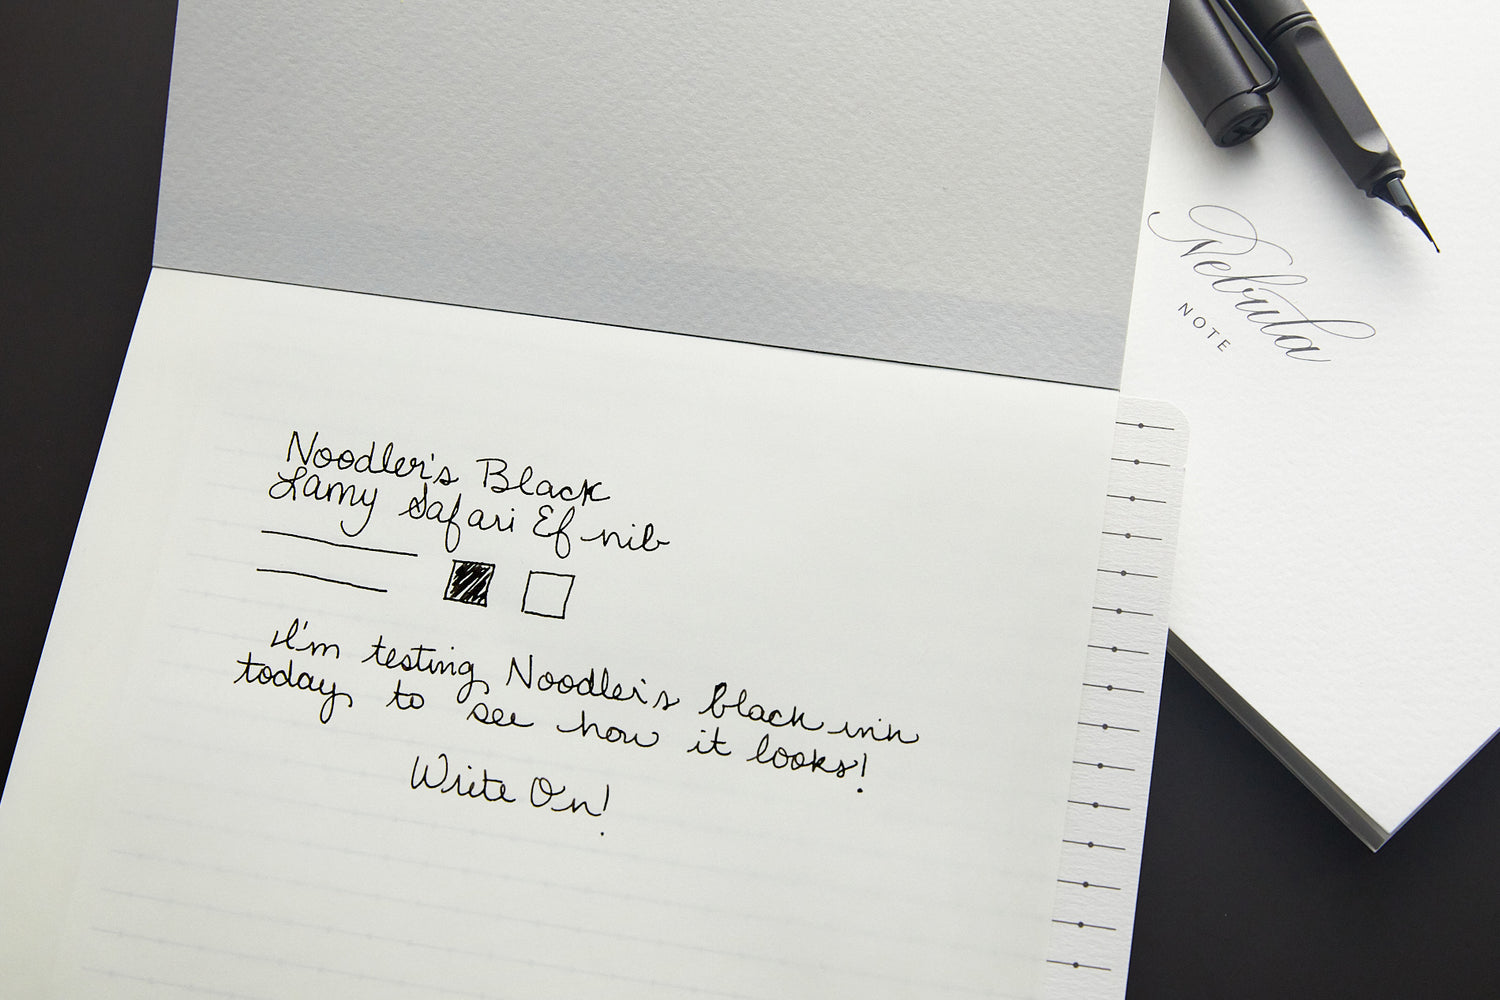 Noodler's Black
Lamy Safari Ef nib
I'm testing Noodler's black ink
today to see how it looks!
Write On!
Nebula
NOTE